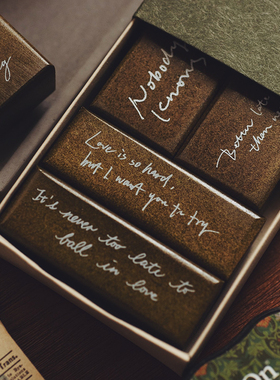 Nobody
Knows
Love is so hard,
but I want you to try
It's never too late to
ball in love